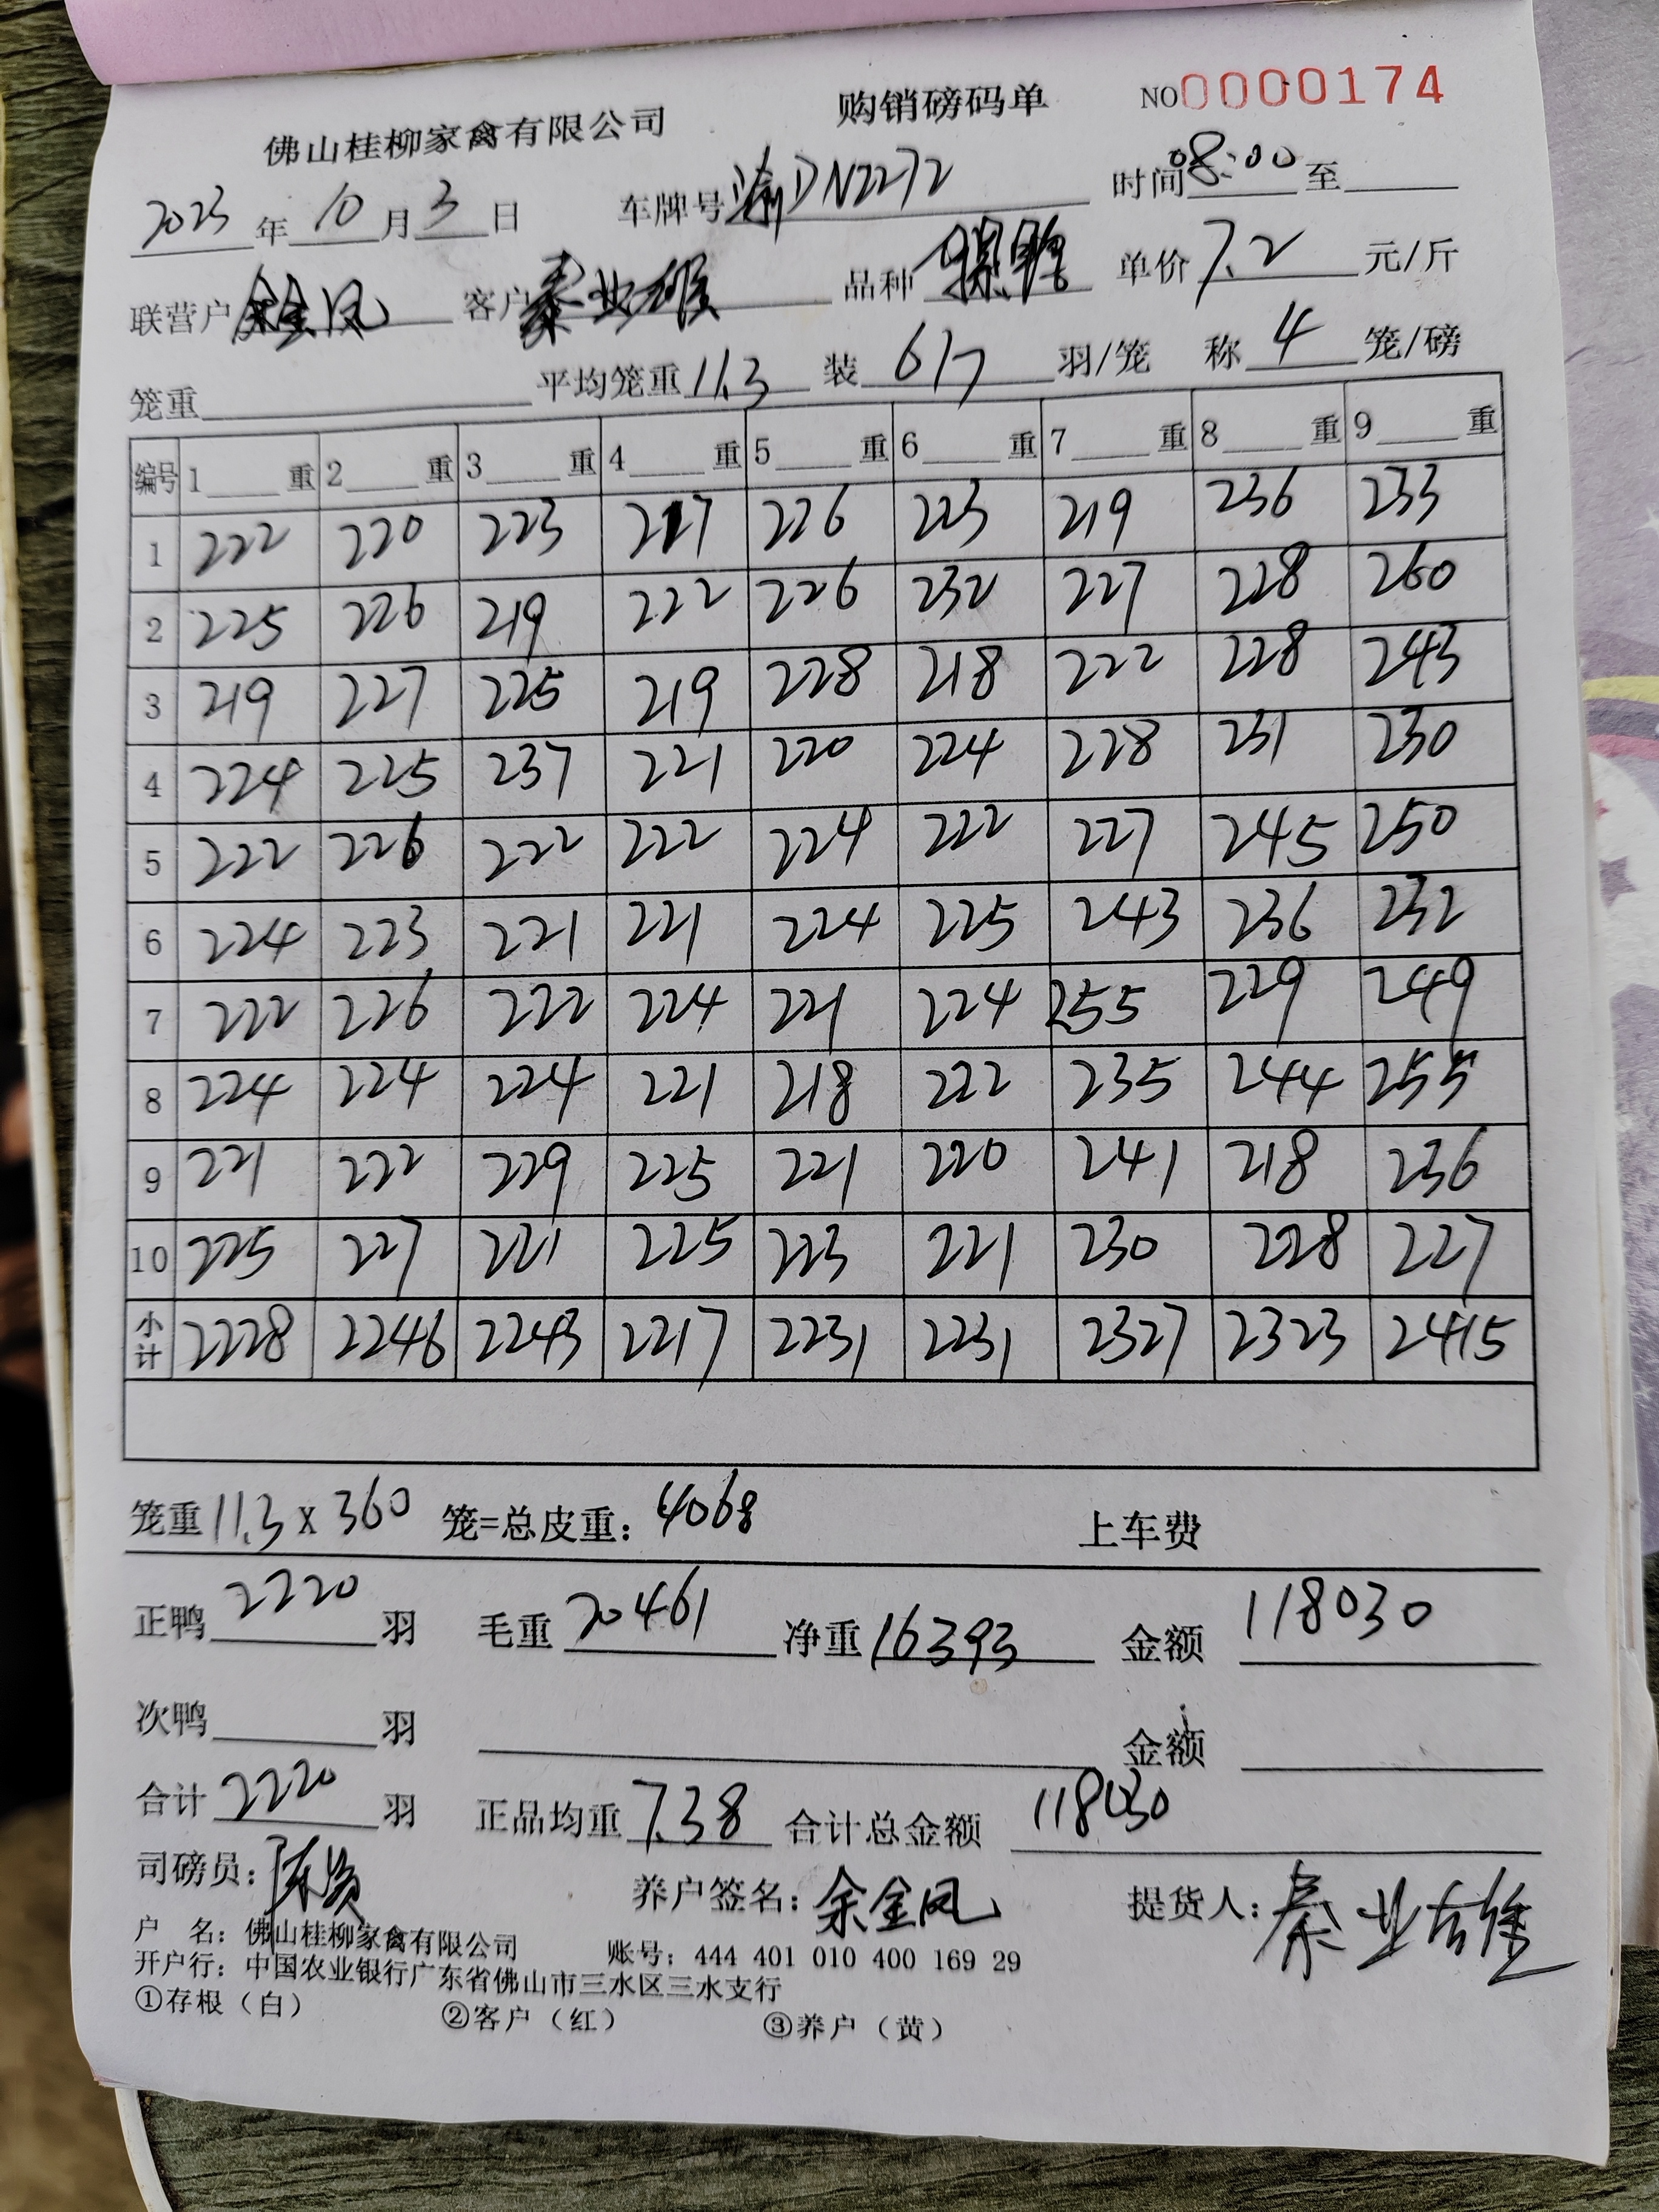 佛山桂柳家禽有限公司 购销磅码单 NO0000174
2023年10月3日 车牌号渝DN2272 时间08:00至
联营户 金凤 客户秦业雄 品种 单价7.2元/斤
笼重 平均笼重11.3 装6/7羽/笼 称4笼/磅
编号 1 重 2 重 3 重 4 重 5 重 6 重 7 重 8 重 9 重
1 222 220 223 217 226 223 219 236 233
2 225 226 219 222 226 232 227 228 260
3 219 227 225 219 228 218 222 228 243
4 224 225 237 221 220 224 228 231 230
5 222 226 222 222 224 222 227 245 250
6 224 223 221 221 224 225 243 236 232
7 222 226 222 224 221 224 255 229 249
8 224 224 224 221 218 222 235 244 255
9 221 222 229 225 221 220 241 218 236
10 225 227 221 225 223 221 230 228 227
小计 2228 2246 2243 2217 2231 2231 2327 2323 2415
笼重11.3x360笼=总皮重:4068 上车费
正鸭2220羽 毛重20461 净重16393 金额118030
次鸭 羽 金额
合计2220羽 正品均重7.38 合计总金额118030
司磅员:陈 养户签名:余金凤 提货人:秦业雄
户 名:佛山桂柳家禽有限公司 账号:444 401 010 400 169 29
开户行:中国农业银行广东省佛山市三水区三水支行
①存根（白） ②客户（红） ③养户（黄）